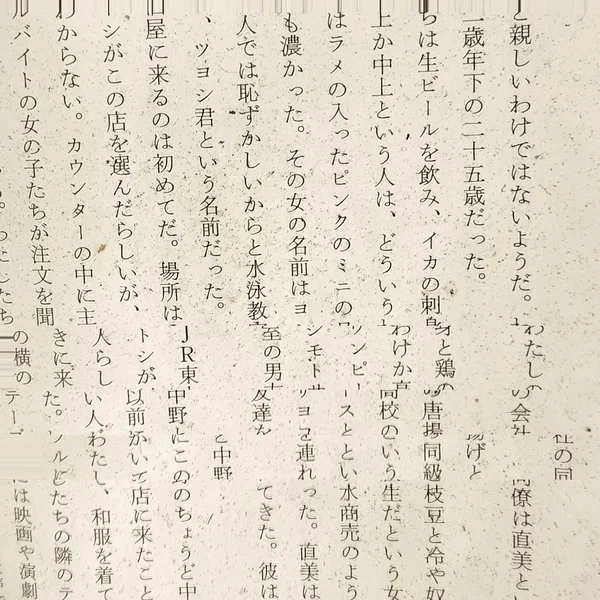 と親しいわけではないようだ。わたしの会社の同僚は直美と
一歳年下の二十五歳だった。
ちは生ビールを飲み、イカの刺身と鶏の唐揚げと枝豆と冷や奴
上か中上という人は、どういうわけか高校の同級生だという女
はラメの入ったピンクのミニのワンピース 水商売のよう
も濃かった。その女の名前はヨシモト った。直美は
人では恥ずかしいからと水泳教室の男友達を連れてきた。彼は
、ツヨシ君という名前だった。
屋に来るのは初めてだ。場所はJR東中野と中野のちょうど中
シがこの店を選んだらしいが、 以前 店に来たこと
わからない。カウンターの中に主人らしい人 和服を着て
ルバイトの女の子たちが注文を聞きに来た。 たちの隣のテ
の横のテー は映画や演劇